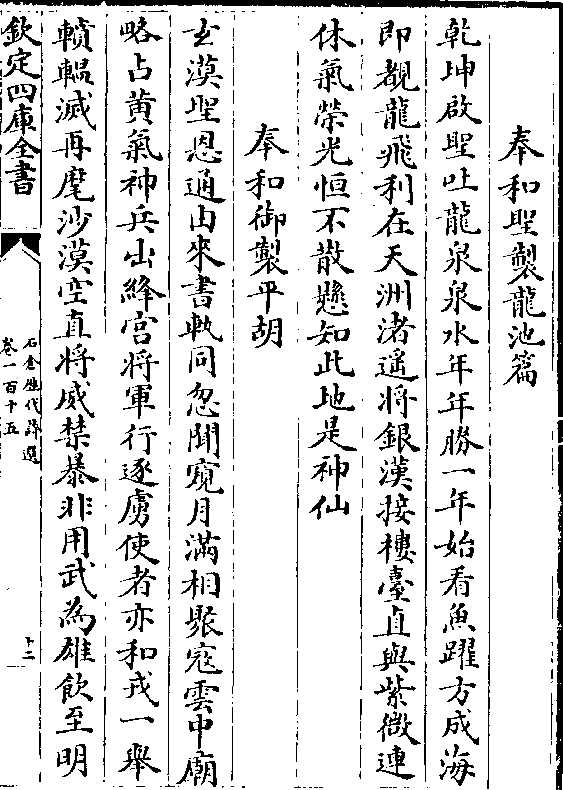 奉和聖製龍池篇
乾坤啟聖吐龍泉泉水年年勝一年始看魚躍方成海
即覩龍飛利在天洲渚遙將銀漢接樓臺直與紫微連
休氣榮光恒不散懸知此地是神仙
奉和御製平胡
玄漠聖恩通由來書軌同忽聞窺月滿相聚寇雲中廟
略占黄氣神兵出絳宮將軍行逐虜使者亦和戎一舉
轒轀滅再麾沙漠空直將威禁暴非用武為雄飲至明
欽定四庫全書
石倉歷代詩選
卷一百十五
十二